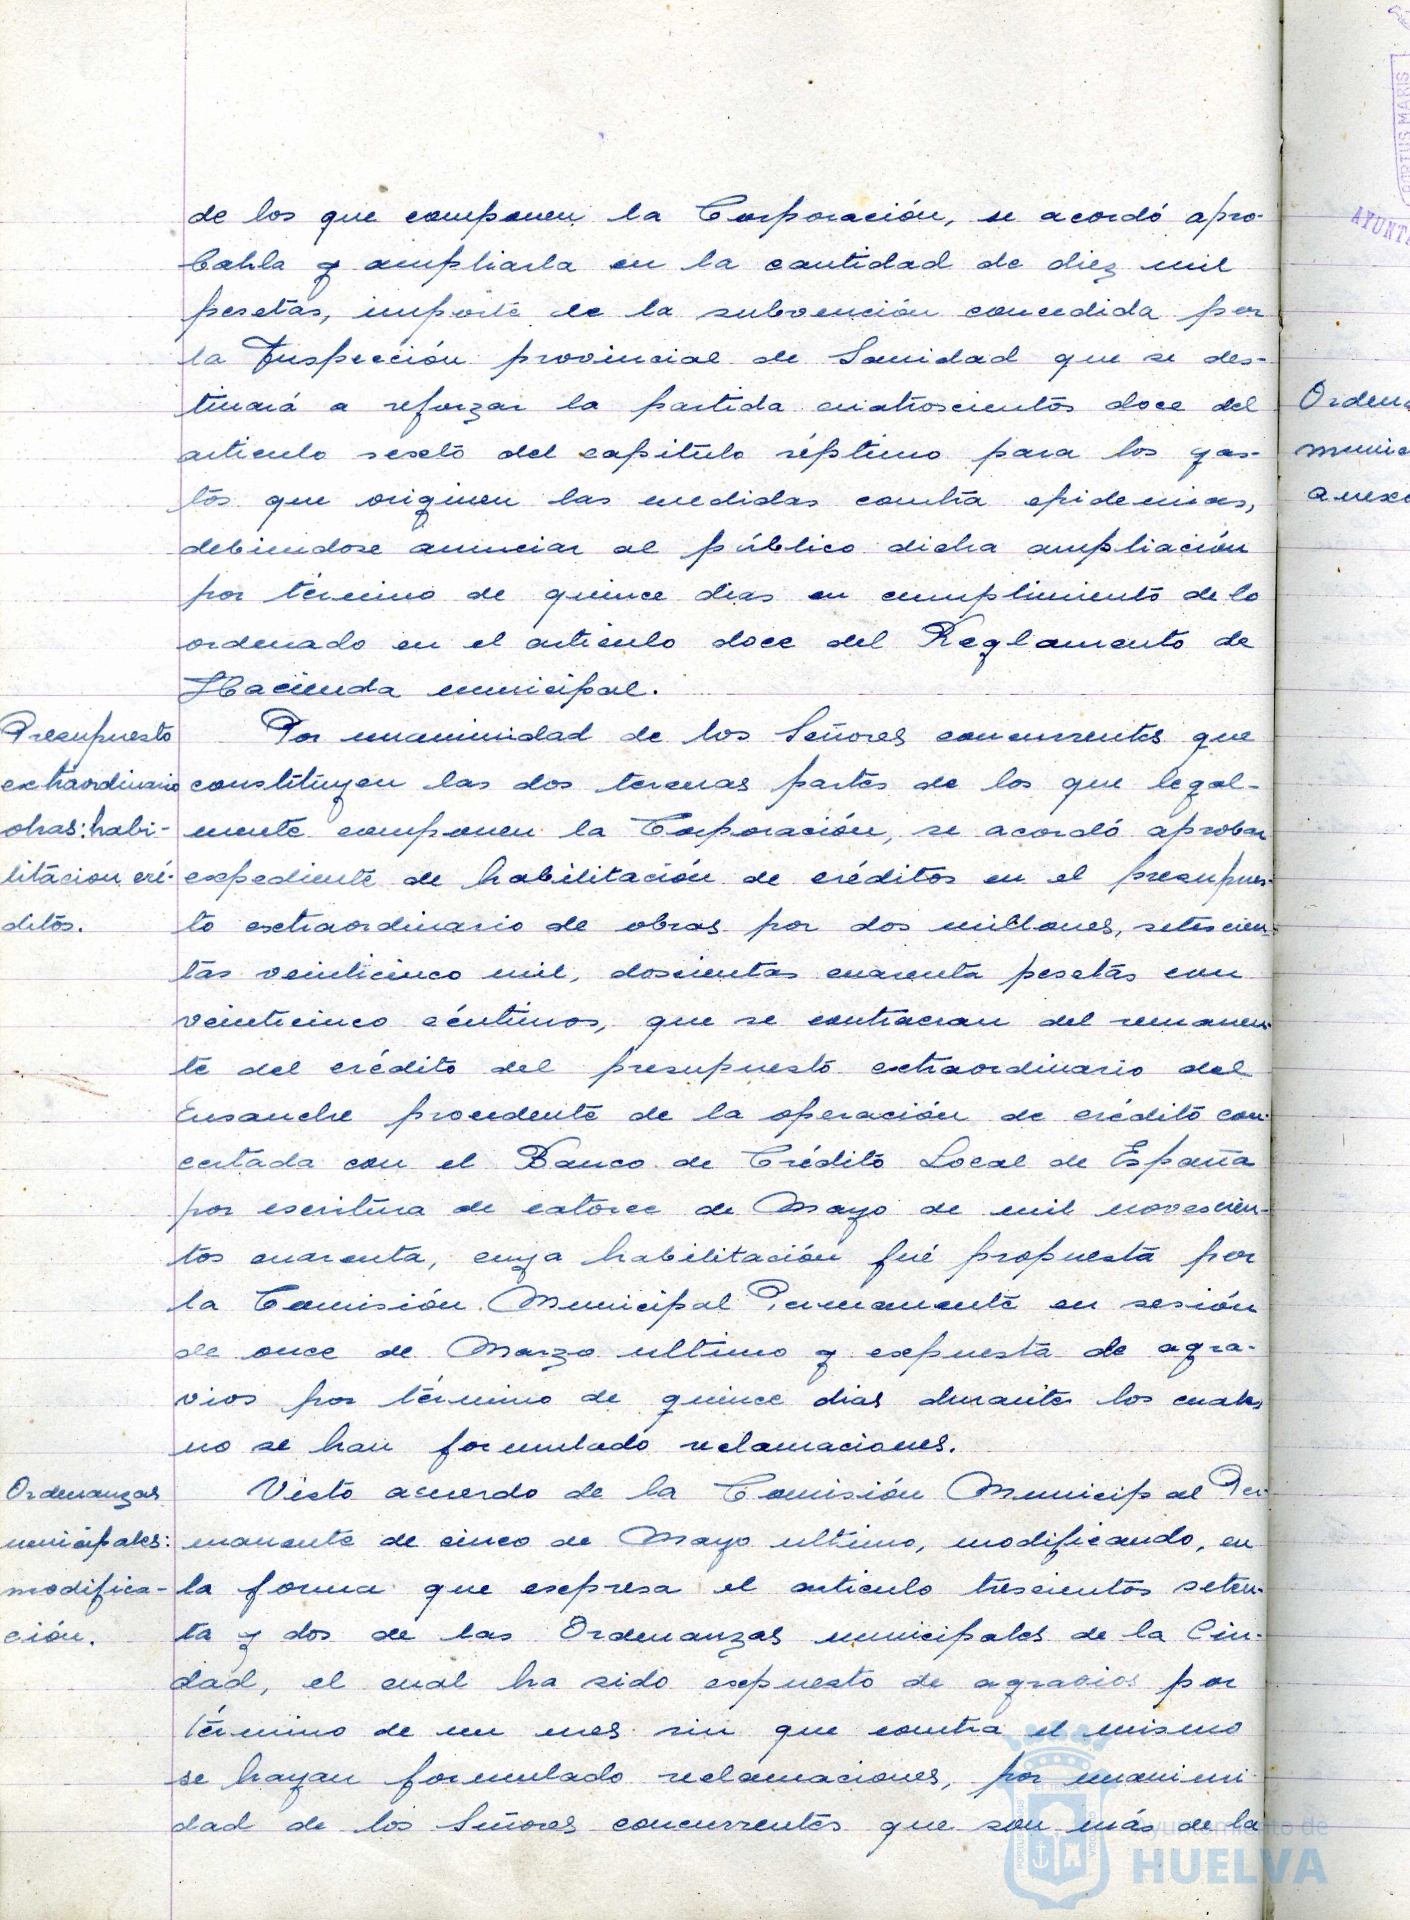 de los que componen la Corporación, se acordó apro-
barla y ampliarla en la cantidad de diez mil
pesetas, importe de la subvención concedida por
la Inspección provincial de Sanidad que se des-
tinará a reforzar la partida cuatroscientos doce del
articulo sexto del capítulo séptimo para los gas-
tos que originen las medidas contra epidemias,
debiendose anunciar al público dicha ampliación
por término de quince dias en cumplimiento de lo
ordenado en el articulo doce del Reglamento de
Hacienda municipal.
Presupuesto
extraordinario
obras: habi-
litacion cré-
ditos.
Por unanimidad de los Señores concurrentes que
constituyen las dos terceras partes de los que legal-
mente componen la Corporación, se acordó aprobar
expediente de habilitación de créditos en el presupues-
to extraordinario de obras por dos millones, setescien-
tas veinticinco mil, doscientas cuarenta pesetas con
veinticinco céntimos, que se contraeran del remanen-
te del crédito del presupuesto extraordinario del
Ensanche procedente de la operación de crédito con-
certada con el Banco de Crédito Local de España
por escritura de catorce de Mayo de mil novescien-
tos cuarenta, cuya habilitación fué propuesta por
la Comisión Municipal Permanente en sesión
de once de Marzo ultimo y expuesta de agra-
vios por término de quince dias durante los cuales
no se han formulado reclamaciones.
Ordenanzas
municipales:
modifica-
ción.
Visto acuerdo de la Comisión Municipal Per-
manente de cinco de Mayo ultimo, modificando, en
la forma que expresa el articulo trescientos seten-
ta y dos de las Ordenanzas municipales de la Ciu-
dad, el cual ha sido expuesto de agravios por
término de un mes sin que contra el mismo
se hayan formulado reclamaciones, por unanimi-
dad de los Señores concurrentes que son más de la
Ayuntamiento de
HUELVA
PORTUS MARIS